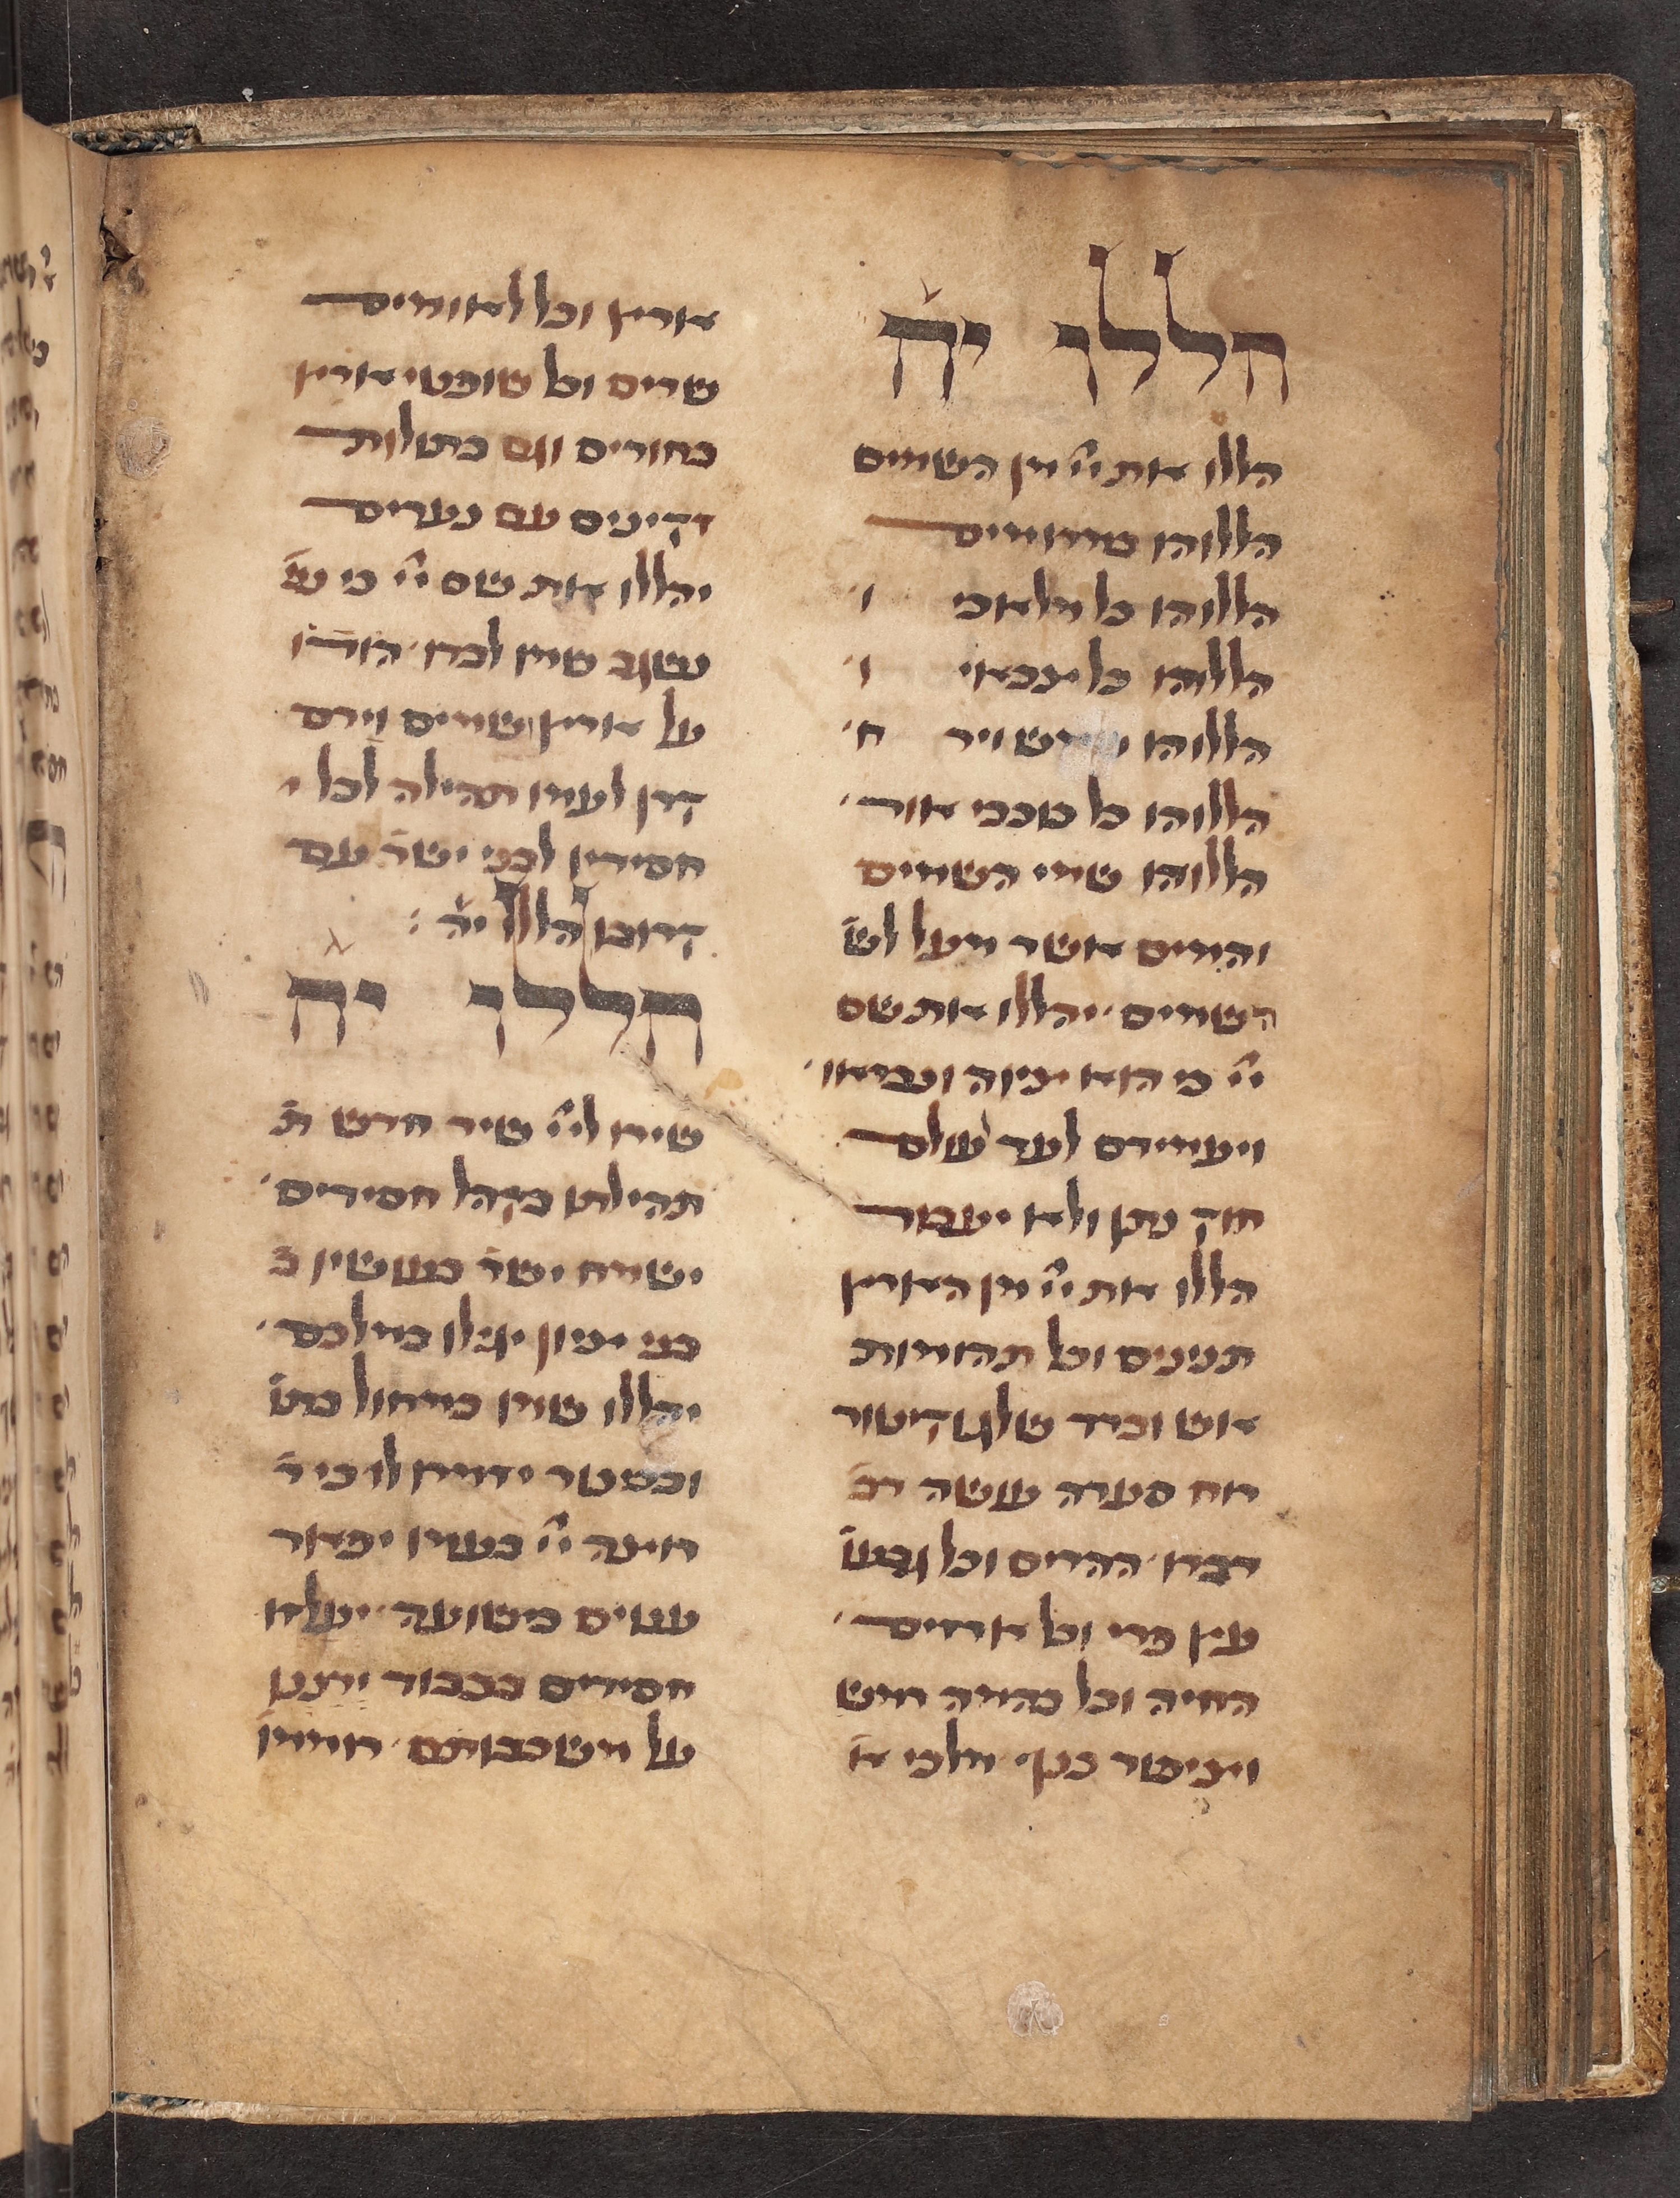 הללו יה
הללו את ייי מן השמים
הללוהו במרומים
הללוהו כל מלאכי ו׳
הללוהו כל צבאיי ו׳
הללוהו שמש ויר ח׳
הללוהו כל כוכבי אור׳
הללוהו שמי השמים
והמים אשר מעל לש
השמים׳ יהללו את שם
ייי כי הוא ציוה ונבראו׳
ויעמידם לעד לעולם
חוק נתן ולא יעבור
הללו את ייי מן הארץ
תנינים וכל תהומות
אש וברד שלג וקיטור
רוח סערה עושה דב
דברו׳ ההרים וכל גבעו
עץ פרי וכל ארזים׳
החיה וכל בהמה רמש
וציפור כנף׳ מלכי א
ארץ וכל לאומים
שרים וכל שופטי ארץ
בחורים וגם בתולות
זקינים עם נערים
יהללו את שם ייי כי נש
נשגב שמו לבדו׳ הודו
על ארץ ושמים וירם
קרן לעמו תהילה לכל י
חסידיו לבני ישר עם
קרובו הללו יה :
הללו יה
שירו לייי שיר חדש ת
תהילתו בקהל חסידים׳
ישמח ישר בעושיו ב
בני ציון יגילו במלכם׳
יהללו שמו במחול בתו
ובכנור יזמרו לו׳ כי ר
רוצה ייי בעמו יפאר
ענוים בישועה׳ יעלזו
חסידים בכבוד ירננו
על משכבותם׳ רוממו